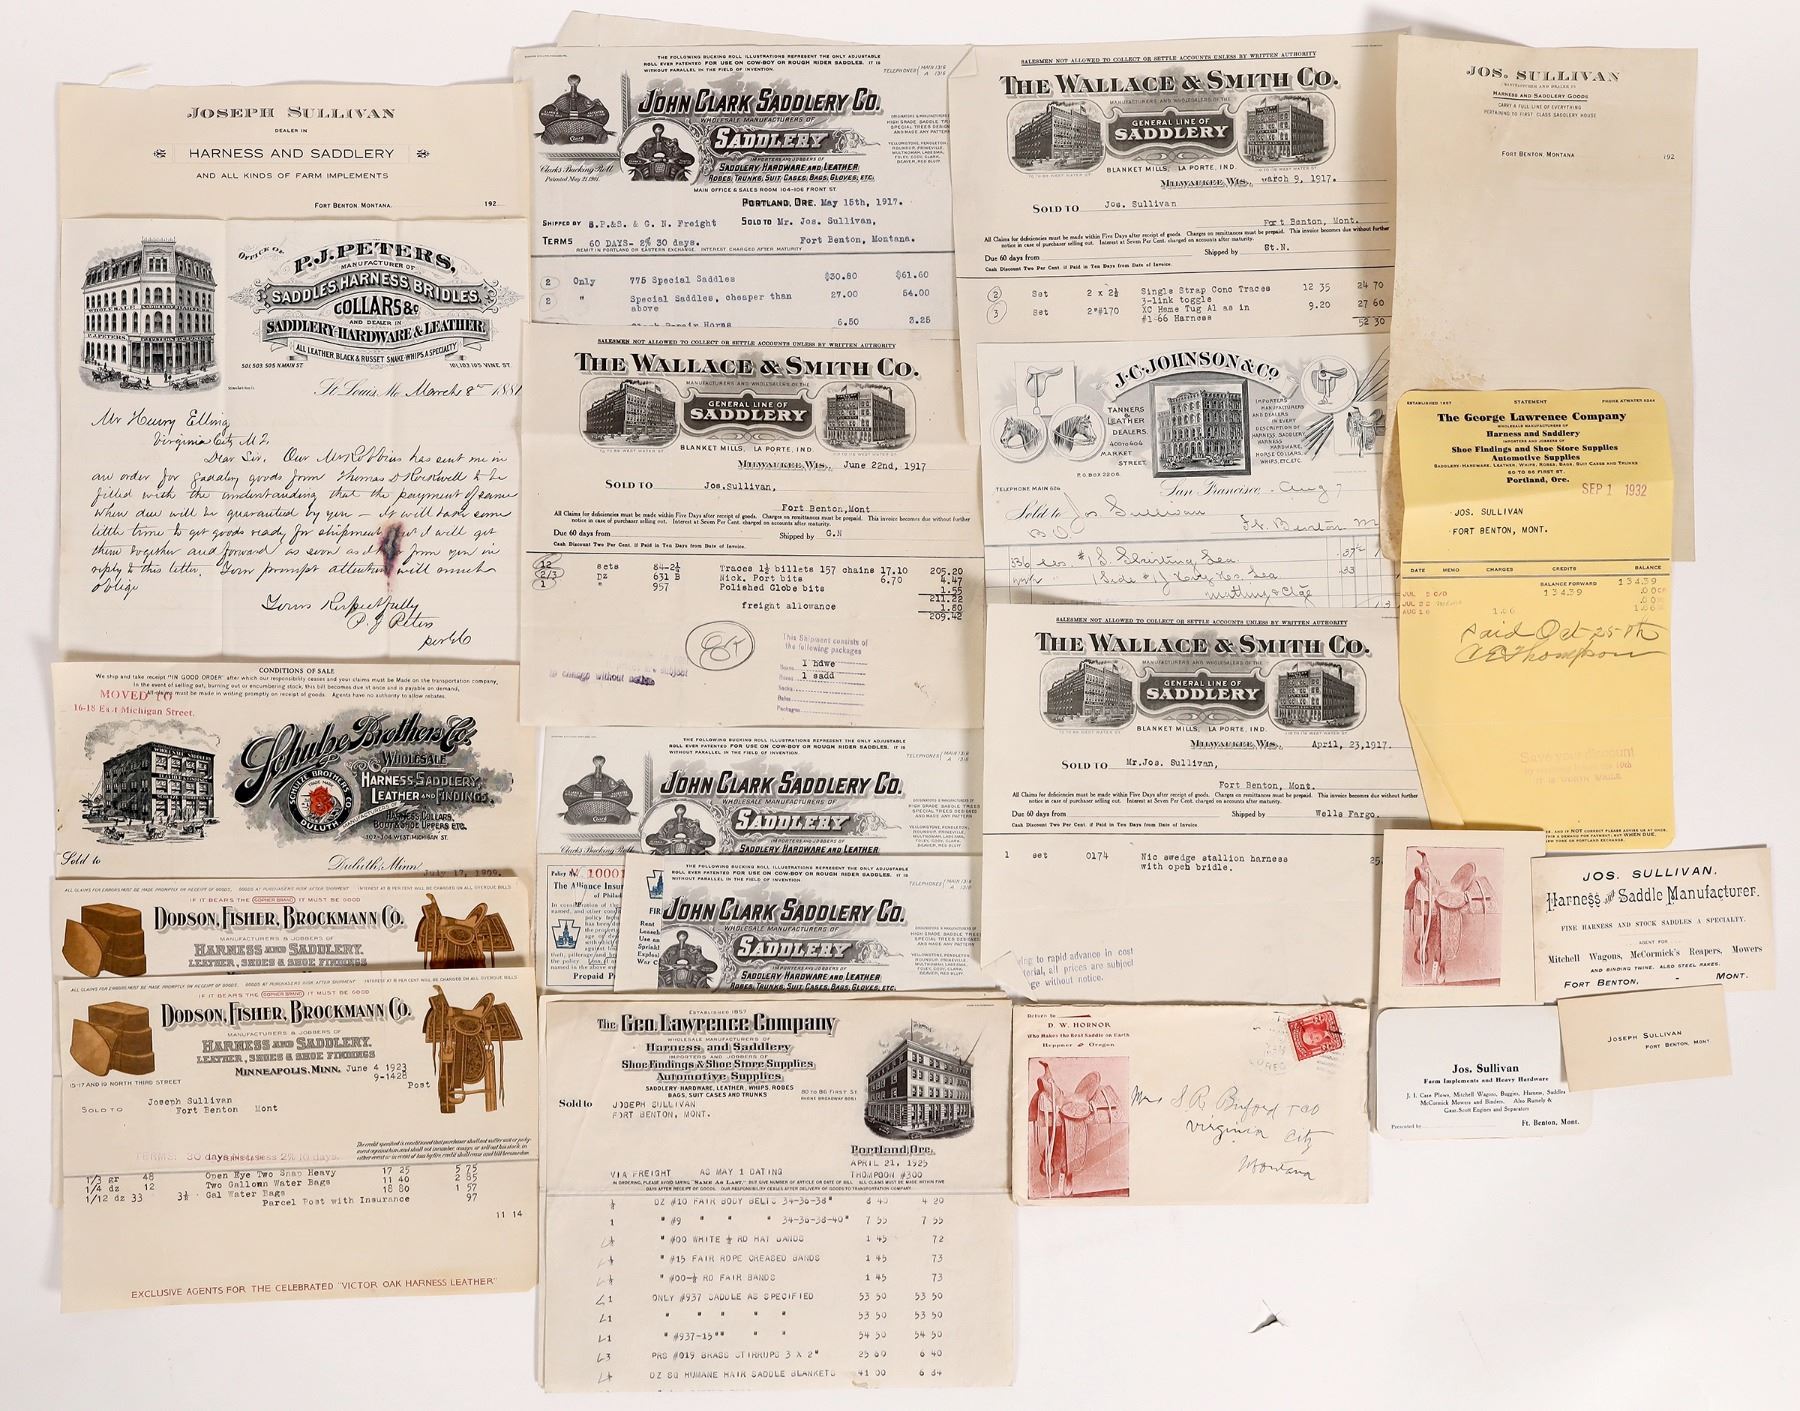 JOSEPH SULLIVAN
DEALER IN
HARNESS AND SADDLERY
AND ALL KINDS OF FARM IMPLEMENTS
FORT BENTON, MONTANA. 192
OFFICE OF
P.J. PETERS,
MANUFACTURER OF
SADDLES, HARNESS, BRIDLES,
COLLARS &c
AND DEALER IN
SADDLERY-HARDWARE & LEATHER
ALL LEATHER BLACK & RUSSET SNAKE-WHIPS A SPECIALTY
501, 503, 505 N. MAIN ST. 101, 103, 105 VINE ST.
WHOLESALE SADDLERY
P.J. PETERS.
St. Louis, Mo March 8th 1881
Mr Henry Elling
Virginia City M.T.
Dear Sir. Our Mr Robbins has sent me in
an order for Saddlery goods from Thomas D Rockwell to be
filled with the understanding that the payment of same
when due will be guaranteed by you — it will take some
little time to get goods ready for shipment I will get
them together and forward as soon as I from you in
reply to this letter. Your prompt attention will much
oblige
Yours Respectfully
P. J Peters
CONDITIONS OF SALE
We ship and take receipt "IN GOOD ORDER" after which our responsibility ceases and your claims must be Made on the transportation company,
In the event of selling out, burning out or encumbering stock, this bill becomes due at once and is payable on demand,
All claims must be made in writing promptly on receipt of goods. Agents have no authority to allow rebates.
MOVED TO
16-18 East Michigan Street.
Schulze Brothers Co.
WHOLESALE
HARNESS SADDLERY,
LEATHER AND FINDINGS.
MANUFACTURERS OF
HARNESS, COLLARS,
BOOT & SHOE UPPERS ETC.
SCHULZE BROTHERS CO
TRADE MARK
DULUTH
302-304 WEST MICHIGAN ST.
Sold to
Duluth, Minn July 17, 1909.
ALL CLAIMS FOR ERRORS MUST BE MADE PROMPTLY ON RECEIPT OF GOODS. GOODS AT PURCHASERS RISK AFTER SHIPMENT INTEREST AT 8 PER CENT WILL BE CHARGED ON ALL OVERDUE BILLS
IF IT BEARS THE GOPHER BRAND IT MUST BE GOOD
DODSON, FISHER, BROCKMANN CO.
MANUFACTURERS & JOBBERS OF
HARNESS AND SADDLERY.
LEATHER, SHOES & SHOE FINDINGS
ALL CLAIMS FOR ERRORS MUST BE MADE PROMPTLY ON RECEIPT OF GOODS. GOODS AT PURCHASERS RISK AFTER SHIPMENT INTEREST AT 8 PER CENT WILL BE CHARGED ON ALL OVERDUE BILLS
IF IT BEARS THE GOPHER BRAND IT MUST BE GOOD
DODSON, FISHER, BROCKMANN CO.
MANUFACTURERS & JOBBERS OF
HARNESS AND SADDLERY.
LEATHER, SHOES & SHOE FINDINGS
MINNEAPOLIS, MINN. June 4 1923
9-1428
15-17 AND 19 NORTH THIRD STREET Post
SOLD TO Joseph Sullivan
Fort Benton Mont
TERMS: 30 days 2% 10 days.
1/3 gr 48 Open Eye Two Snap Heavy 17 25 5 75
1/4 dz 12 Two Gallomn Water Bags 11 40 2 85
1/12 dz 33 3½ Gal Water Bags 18 80 1 57
Parcel Post with Insurance 97
11 14
EXCLUSIVE AGENTS FOR THE CELEBRATED "VICTOR OAK HARNESS LEATHER"
THE FOLLOWING BUCKING ROLL ILLUSTRATIONS REPRESENT THE ONLY ADJUSTABLE
ROLL EVER PATENTED FOR USE ON COW-BOY OR ROUGH RIDER SADDLES. IT IS
WITHOUT PARALLEL IN THE FIELD OF INVENTION.
TELEPHONES MAIN 1316
A 1316
JOHN CLARK SADDLERY CO.
WHOLESALE MANUFACTURERS OF
SADDLERY
IMPORTERS AND JOBBERS OF
SADDLERY, HARDWARE AND LEATHER,
ROBES, TRUNKS, SUIT CASES, BAGS, GLOVES, ETC.
MAIN OFFICE & SALES ROOM 104-106 FRONT ST.
Clarks Bucking Roll
Patented May 21, 1901.
YELLOWSTONE, PENDLETON
ROUNDUP, PRINEVILLE,
MULTNOMAH, LADESMA,
FOLEY, CODY, CLARK,
BEAVER, RED BLUFF
PORTLAND, ORE. May 15th, 1917.
SHIPPED BY S.P.&S. & G. N. Freight SOLD TO Mr. Jos. Sullivan,
TERMS 60 DAYS- 2% 30 days. Fort Benton, Montana.
REMIT IN PORTLAND OR EASTERN EXCHANGE. INTEREST CHARGED AFTER MATURITY
2 Only 775 Special Saddles $30.80 $61.60
2 " Special Saddles, cheaper than 27.00 54.00
above
6.50 3.25
SALESMEN NOT ALLOWED TO COLLECT OR SETTLE ACCOUNTS UNLESS BY WRITTEN AUTHORITY
THE WALLACE & SMITH CO.
MANUFACTURERS AND WHOLESALERS OF THE
GENERAL LINE OF
SADDLERY
BLANKET MILLS, LA PORTE, IND.
MILWAUKEE, WIS., June 22nd, 1917
SOLD TO Jos.Sullivan,
Fort Benton,Mont
All Claims for deficiencies must be made within Five Days after receipt of goods. Charges on remittances must be prepaid. This invoice becomes due without further
notice in case of purchaser selling out. Interest at Seven Per Cent. charged on accounts after maturity.
Due 60 days from Shipped by G.N
Cash Discount Two Per Cent. if Paid in Ten Days from Date of Invoice.
12 sets 84-2½ Traces 1½ billets 157 chains 17.10 205.20
2/3 Dz 631 B Nick. Port bits 6.70 4.47
1 " 957 Polished Globe bits 1.55
211.22
freight allowance 1.80
209.42
This Shipment consists of
the following packages
1 hdwe
1 sadd
Packages
THE FOLLOWING BUCKING ROLL ILLUSTRATIONS REPRESENT THE ONLY ADJUSTABLE
ROLL EVER PATENTED FOR USE ON COW-BOY OR ROUGH RIDER SADDLES. IT IS
WITHOUT PARALLEL IN THE FIELD OF INVENTION.
TELEPHONES MAIN 1316
A 1316
JOHN CLARK SADDLERY CO.
WHOLESALE MANUFACTURERS OF
SADDLERY
IMPORTERS AND JOBBERS OF
SADDLERY HARDWARE AND LEATHER
Clarks Bucking Roll
Policy No. 10001
The Alliance Insur
of Philad
Prepaid P
THE FOLLOWING BUCKING ROLL ILLUSTRATIONS REPRESENT THE ONLY ADJUSTABLE
ROLL EVER PATENTED FOR USE ON COW-BOY OR ROUGH RIDER SADDLES. IT IS
WITHOUT PARALLEL IN THE FIELD OF INVENTION.
TELEPHONES MAIN 1316
A 1316
JOHN CLARK SADDLERY CO.
WHOLESALE MANUFACTURERS OF
SADDLERY
IMPORTERS AND JOBBERS OF
SADDLERY, HARDWARE AND LEATHER
ROBES, TRUNKS, SUIT CASES, BAGS, GLOVES, ETC.
ESTABLISHED 1857
The Geo. Lawrence Company
WHOLESALE MANUFACTURERS OF
Harness, and Saddlery
IMPORTERS AND JOBBERS OF
Shoe Findings & Shoe Store Supplies
Automotive Supplies
SADDLERY-HARDWARE, LEATHER, WHIPS, ROBES
BAGS, SUIT CASES AND TRUNKS
80 to 86 FIRST ST
Sold to JOSEPH SULLIVAN
FORT BENTON, MONT.
Portland, Ore.
APRIL 21, 1925
VIA FREIGHT AS MAY 1 DATING THOMPSON #300
IN ORDERING, PLEASE AVOID SAYING "SAME AS LAST," BUT GIVE NUMBER OF ARTICLE OR DATE OF BILL
½ DZ #10 FAIR BODY BELTS 34-36-38" 8 40 4 20
1 " #9 " " " 34-36-38-40" 7 55 7 55
½ " #00 WHITE ½ RD HAT BANDS 1 45 72
½ " #15 FAIR ROPE CREASED BANDS 1 45 73
½ " #00-½ RD FAIR BANDS 1 45 73
1 ONLY #937 SADDLE AS SPECIFIED 53 50 53 50
1 " " " " 53 50 53 50
1 " #937-15" " " 54 50 54 50
3 PRS #019 BRASS STIRRUPS 3 X 2" 25 60 6 40
DZ SQ HUMANE HAIR SADDLE BLANKETS 41 00 6 84
SALESMEN NOT ALLOWED TO COLLECT OR SETTLE ACCOUNTS UNLESS BY WRITTEN AUTHORITY
THE WALLACE & SMITH CO.
MANUFACTURERS AND WHOLESALERS OF THE
GENERAL LINE OF
SADDLERY
BLANKET MILLS, LA PORTE, IND.
MILWAUKEE, WIS., March 9, 1917.
SOLD TO Jos. Sullivan
Fort Benton, Mont.
All Claims for deficiencies must be made within Five Days after receipt of goods. Charges on remittances must be prepaid. This invoice becomes due without further
notice in case of purchaser selling out. Interest at Seven Per Cent. charged on accounts after maturity.
Due 60 days from Shipped by Gt.N.
Cash Discount Two Per Cent. if Paid in Ten Days from Date of Invoice.
2 Set 2 x 2½ Single Strap Conc Traces 12 35 24 70
3-link toggle
3 Set 2"#170 XC Hame Tug Al as in 9.20 27 60
#1 66 Harness
52 30
J.C. JOHNSON & CO.
TANNERS
& LEATHER
DEALERS.
400 to 404
MARKET
STREET.
P.O. BOX 2208
IMPORTERS
MANUFACTURERS
AND DEALERS
IN EVERY
DESCRIPTION OF
HARNESS, SADDLERY,
HARNESS
HARDWARE,
HORSE COLLARS,
WHIPS, ETC. ETC.
TELEPHONE MAIN 604
San Francisco, Aug 7
Sold to Jos Sullivan
Ft. Benton M
#1 S. Skirting Lea
1 Side #1 Heavy Hs. Lea
SALESMEN NOT ALLOWED TO COLLECT OR SETTLE ACCOUNTS UNLESS BY WRITTEN AUTHORITY
THE WALLACE & SMITH CO.
MANUFACTURERS AND WHOLESALERS OF THE
GENERAL LINE OF
SADDLERY
BLANKET MILLS, LA PORTE, IND.
MILWAUKEE, WIS., April, 23,1917.
SOLD TO Mr.Jos. Sullivan,
Fort Benton, Mont.
All Claims for deficiencies must be made within Five Days after receipt of goods. Charges on remittances must be prepaid. This invoice becomes due without further
notice in case of purchaser selling out. Interest at Seven Per Cent. charged on accounts after maturity.
Due 60 days from Shipped by Wells Fargo.
Cash Discount Two Per Cent. if Paid in Ten Days from Date of Invoice.
1 set 0174 Nic swedge stallion harness 25.
with open bridle.
ing to rapid advance in cost
terial, all prices are subject
ge without notice.
Return to
D. W. HORNOR
Who Makes the Best Saddle on Earth
Heppner Oregon
Mrs S. R. Buford & Co
Virginia City
Montana
JOS. SULLIVAN
MANUFACTURER AND DEALER IN
HARNESS AND SADDLERY GOODS
CARRY A FULL LINE OF EVERYTHING
PERTAINING TO FIRST CLASS SADDLERY HOUSE
FORT BENTON, MONTANA 192
ESTABLISHED 1857 STATEMENT PHONE ATWATER 5244
The George Lawrence Company
WHOLESALE MANUFACTURERS OF
Harness and Saddlery
IMPORTERS AND JOBBERS OF
Shoe Findings and Shoe Store Supplies
Automotive Supplies
SADDLERY-HARDWARE, LEATHER, WHIPS, ROBES, BAGS, SUIT CASES AND TRUNKS
80 TO 86 FIRST ST.
Portland, Ore.
SEP 1 1932
JOS. SULLIVAN
FORT BENTON, MONT.
DATE MEMO CHARGES CREDITS BALANCE
BALANCE FORWARD 134.39
134.39 .00
.00
1.06 1.06
Paid Oct 25th
C E Thompson
Save your discount
JOS. SULLIVAN.
Harness and Saddle Manufacturer.
FINE HARNESS AND STOCK SADDLES A SPECIALTY.
AGENT FOR
Mitchell Wagons, McCormick's Reapers, Mowers
AND BINDING TWINE. ALSO STEEL RAKES.
FORT BENTON, - MONT.
JOSEPH SULLIVAN
FORT BENTON, MONT.
Jos. Sullivan
Farm Implements and Heavy Hardware
J. I. Case Plows, Mitchell Wagons, Buggies, Harness, Saddles
McCormick Mowers and Binders. Also Rumely &
Gaar-Scott Engines and Separators
Presented by Ft. Benton, Mont.